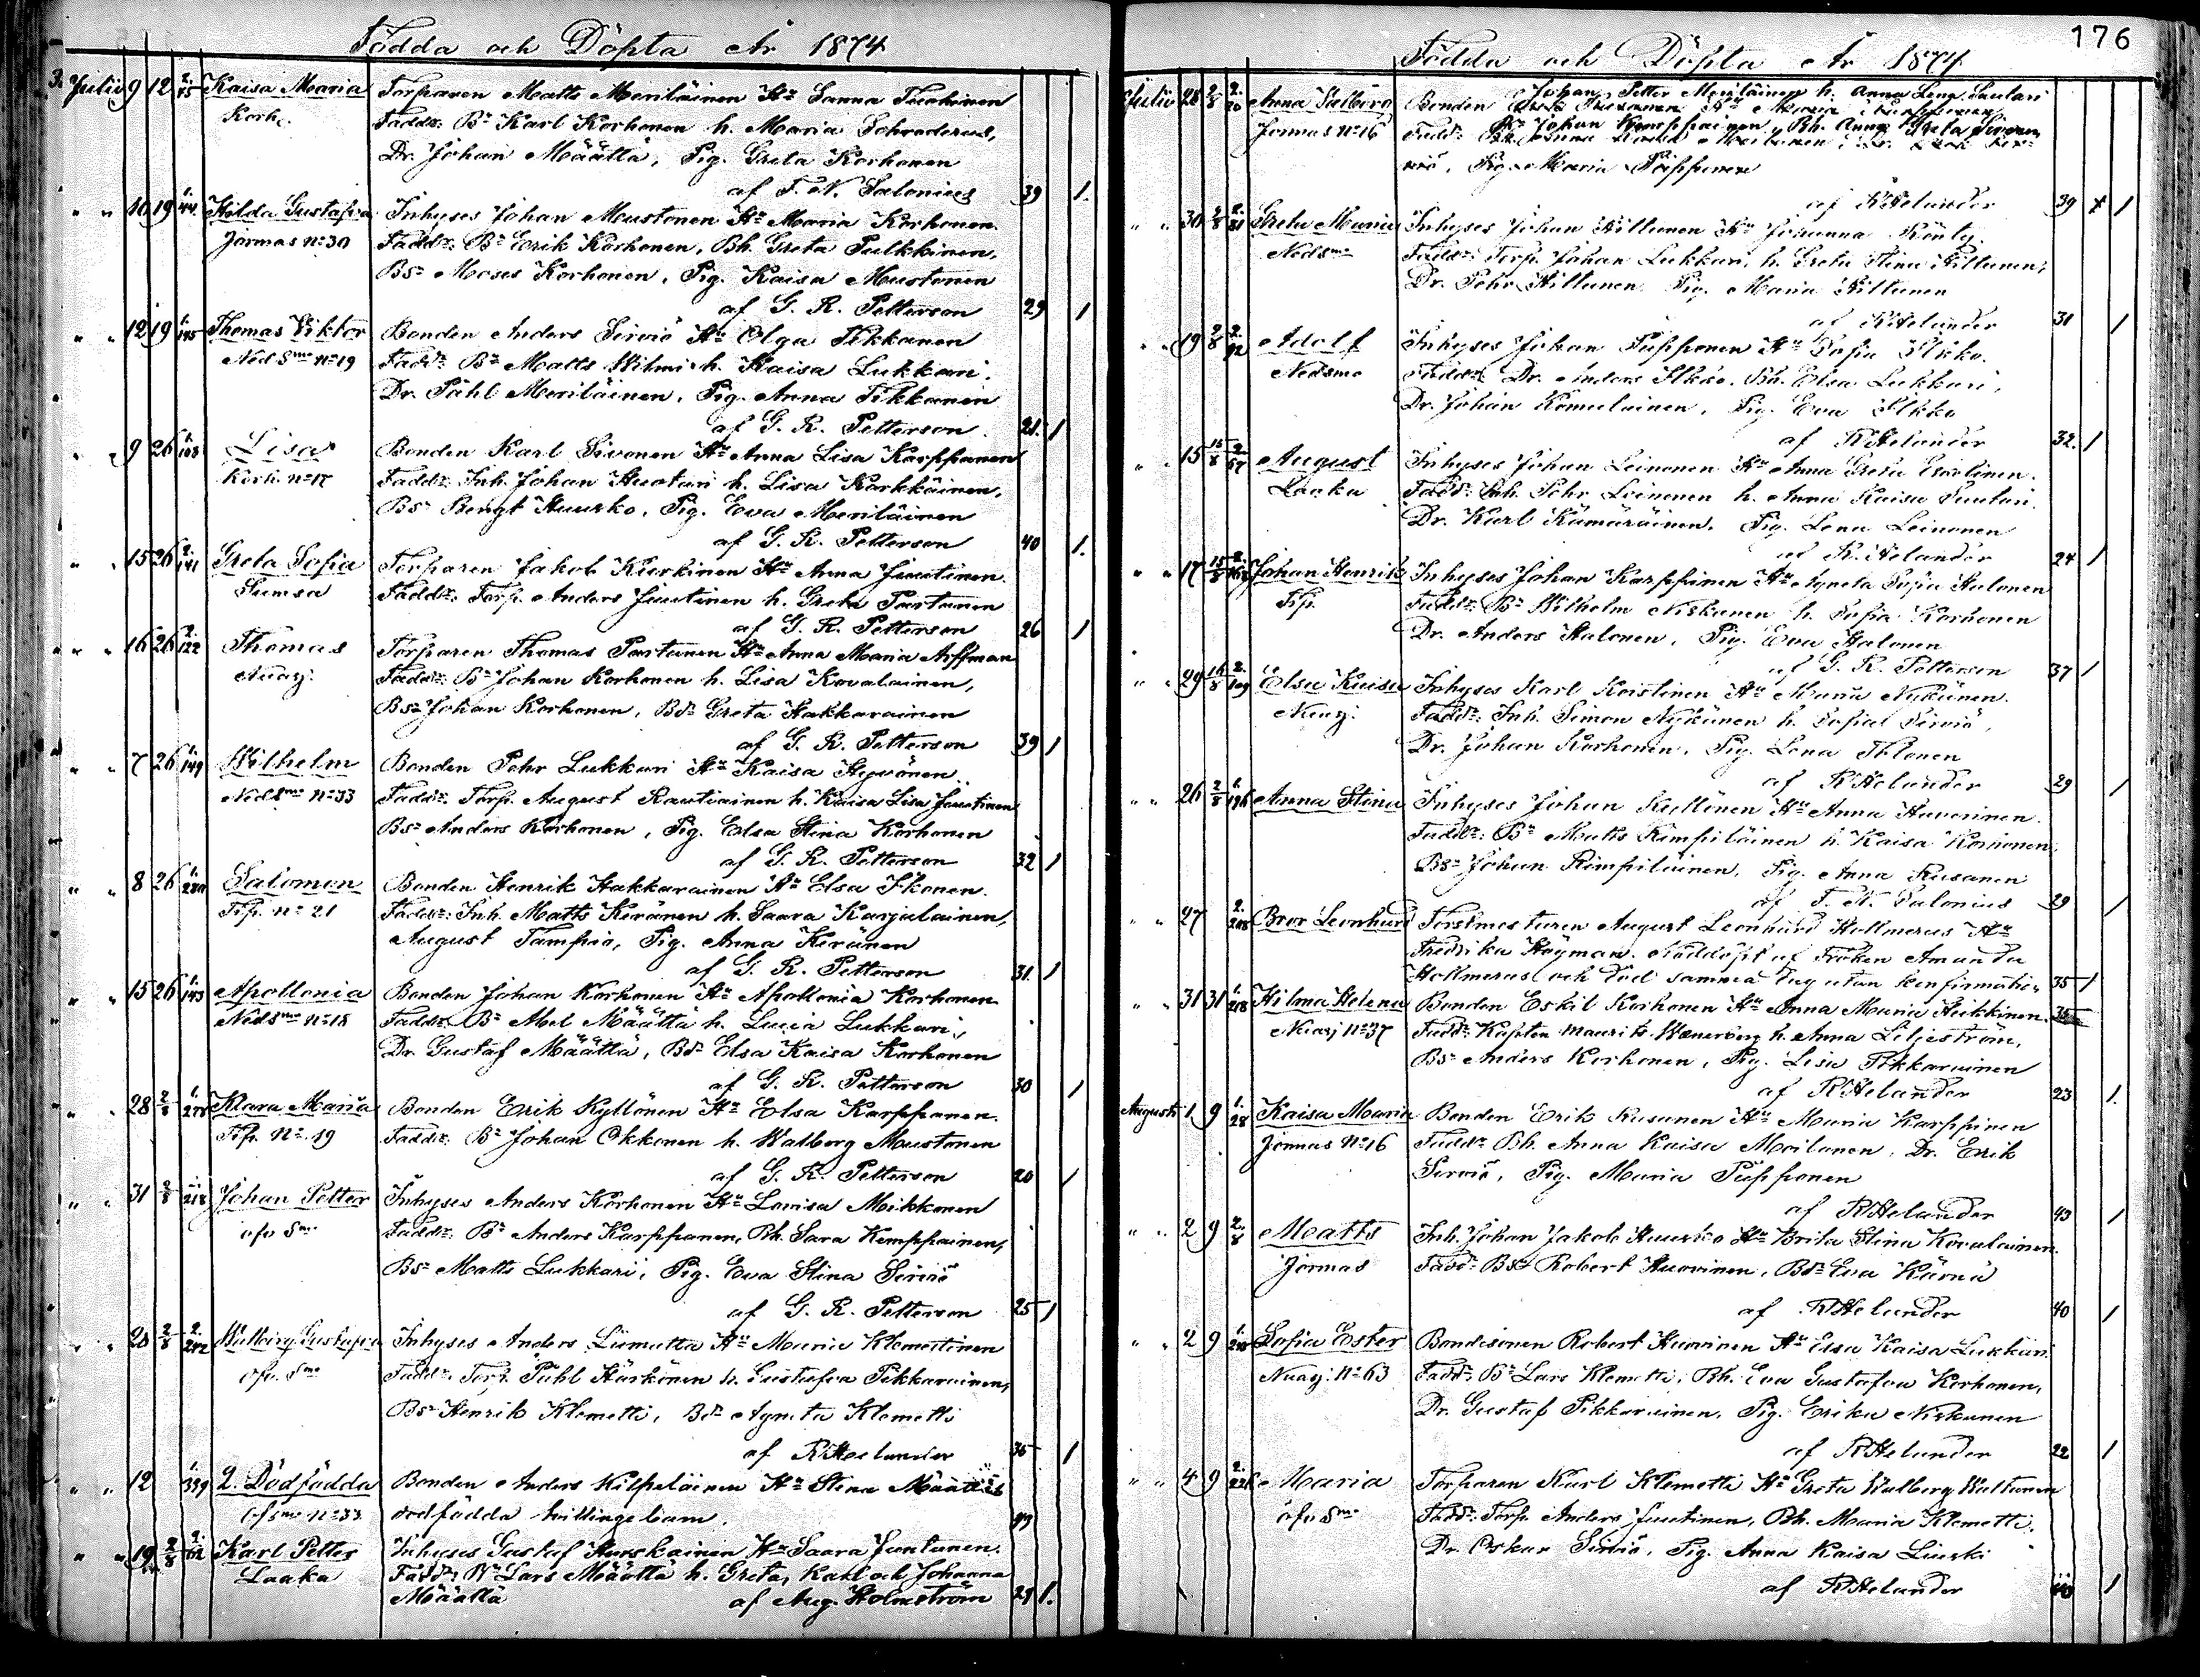 Födda och Döpta År 1874
3. Julii 9 12 Kaisa Maria Torparen Matts Meriläinen Hu Sanna
Korh. Fadd: Bn Karl Korhonen h. Maria Schroderus,
Dr. Johan Määttä, Pig. Greta Korhonen
af F. N. Salonius 39 1.
" " 10 19 Hilda Gustafva Inhyses Johan Mustonen Hu Maria Korhonen.
Jormas No 30 Fadd: Bn Erik Korhonen, Bh. Greta Pulkkinen,
Bs Moses Korhonen, Pig. Kaisa Mustonen
af G. R. Petterson 29 1
" " 12 19 Thomas Viktor Bonden Anders Serviö Hu Olga Pikkanen
Neds. No 19 Fadd: Bn Matts Wilmi h. Kaisa Lukkari,
Dr. Påhl Meriläinen, Pig. Anna Pikkanen
af G. R. Petterson 21. 1
" " 9 26 Lisa Bonden Karl Sivonen Hu Anna Lisa Karppanen
Korh. No 17 Fadd: Inh. Johan Huotari h. Lisa Karkkäinen,
Bs Bengt Huurko, Pig. Eva Meriläinen
af G. R. Petterson 40 1.
" " 15 26 Greta Sofia Torparen Jakob Kurkinen Hu Anna Juutinen.
Sumsa Fadd: Torp. Anders Juutinen h. Greta Partanen
af G. R. Petterson 26 1
" " 16 26 Thomas Torparen Thomas Partanen Hu Anna Maria Arffman
Nuasj. Fadd: Bn Johan Korhonen h. Lisa Kovalainen,
Bs Johan Korhonen, Bd Greta Hakkarainen
af G. R. Petterson 39 1
" " 7 26 Wilhelm Bonden Pehr Lukkari Hu Kaisa Hyvönen.
Neds. No 33 Fadd: Torp. August Rautiainen h. Kaisa Lisa Juutinen
Bs Anders Korhonen, Pig. Elsa Stina Korhonen
af G. R. Petterson 32 1
" " 8 26 Salomon Bonden Henrik Hakkarainen Hu Elsa Ikonen.
No 21 Fadd: Inh. Matts Keränen h. Saara Karjalainen,
August Tampio, Pig. Anna Keränen
af G. R. Petterson 31. 1
" " 15 26 Apollonia Bonden Johan Korhonen Hu Apollonia Korhonen.
Neds. No 18 Fadd: Bn Abel Määttä h. Lucia Lukkari,
Dr. Gustaf Määttä, Bd Elsa Kaisa Korhonen
af G. R. Petterson 30 1
" " 28 2/8 Klara Maria Bonden Erik Kyllönen Hu Elsa Karppanen.
No. 19 Fadd: Bn Johan Okkonen h. Walborg Mustonen
af G. R. Petterson 20 1
" " 31 2/8 Johan Petter Inhyses Anders Korhonen Hu Lovisa Mikkonen
Fadd: Bn Anders Karppanen, Bh. Sara Kemppainen,
Bs Matts Lukkari, Pig. Eva Stina Serviö
af G. R. Petterson 25 1
" " 28 2/8 Walborg Gustafva Inhyses Anders Liimatta Hu Maria Klementinen
Fadd: Torp. Påhl Härkönen h. Gustafva Pikkarainen,
Bs Henrik Klemetti, Bd Agneta Klemetti
af R Helander 35 1
" " 12 2. Dödfödda Bonden Anders Kilpeläinen Hu Stina Määttä
No 33 dödfödda tvillingebarn.
" " 19 2/8 Karl Petter Inhyses Gustaf Hurskainen Hu Saara Juntunen.
Laaka Fadd: Bn Lars Määttä h. Greta, Karl och Johanna
Määttä af Aug. Holmström 29 1.
176
Födda och Döpta År 1874
Julii 28 2/8 Anna Walborg Bonden Johan Petter Meriläinen h. Anna Lena Tuutari
Jormas No 16 Fadd: Johan Kemppainen, Bh. Anna Greta
Serviö, Pig. Maria Piipponen
af R Helander 39 1
" " 30 2/8 Greta Maria Inhyses Johan Hiltunen Hu Johanna Ränty
Neds. Fadd: Torp. Johan Lukkari, h. Greta Stina Hiltunen,
Dr. Pehr Hiltunen Pig. Maria Hiltunen
af R Helander 31 1
" " 19 2/8 Adolf Inhyses Johan Piipponen Hu Sofia Ilkko.
Nedsme Fadd: Dr. Anders Ilkko, Bh. Elsa Lukkari,
Dr. Johan Komulainen, Pig. Eva Ilkko
af R Helander 32. 1
" " 15 15/8 August Inhyses Johan Leinonen Hu Anna Greta
Laaka Fadd: Inh. Pehr Leinonen h. Anna Kaisa Tuutari.
Dr. Karl Kämäräinen. Pig. Lena Leinonen
af R. Helander 24 1
" " 17 15/8 Johan Henrik Inhyses Johan Karppinen Hu Agneta Sofia Halonen
Fadd: Bn Wilhelm Niskanen h. Sofia Korhonen
Dr. Anders Halonen, Pig. Eva Halonen
af G. R. Petterson 37 1
" " 29 16/8 Elsa Kaisa Inhyses Karl Karstinen Hu Maria Nykänen.
Nuasj. Fadd: Inh. Simon Nykänen h. Sofia Serviö,
Dr. Johan Korhonen, Pig. Lena
af R Helander 29 1
" " 26 2/8 Anna Stina Inhyses Johan Kyllönen Hu Anna Huovinen.
Fadd: Bn Matts Rimpiläinen h. Kaisa Korhonen,
Bs Johan Rimpiläinen, Pig. Anna Rusanen
af F. N. Salonius 29 1
" " 27 Bror Leonhard Forstmästaren August Leonhard Hollmerus Hu
Fredrika Höijman. Nöddöpt af Fröken Amanda
Hollmerus och Död samma dag utan konfirmation 35 1
" " 31 31 Hilma Helena Bonden Eskil Korhonen Hu Anna Maria Heikkinen.
Nuasj No 37 Fadd: Kapten Maurits Wænerberg h. Anna Liljeström,
Bs Anders Korhonen, Pig. Lisa Pikkarainen
af R Helander 23 1.
Augusti 1 9 Kaisa Maria Bonden Erik Rusanen Hu Maria Karppinen
Jormas No 16 Fadd: Bh. Anna Kaisa Moilanen, Dr. Erik
Serviö, Pig. Maria Piipponen
af R Helander 43 1
" " 2 9 Matts Inh. Johan Jakob Huurko Hu Brita Stina Kovalainen.
Jormas Fadd: Bs Robert Huovinen, Bd Eva Kärnä
af R Helander 40 1
" " 2 9 Sofia Ester Bondesonen Robert Huovinen Hu Elsa Kaisa Lukkari
Nuasj: No 63 Fadd: Bn Lars Klemetti, Bh. Eva Gustafva Korhonen,
Dr. Gustaf Pikkarainen, Pig. Erika Niskanen
af R Helander 22 1
" " 4 9 Maria Torparen Karl Klemetti Hu Greta Walborg Waltanen
Fadd: Torp. Anders Juutinen, Bh. Maria Klemetti.
Dr. Oskar Serviö, Pig. Anna Kaisa Liuski
af R Helander 1